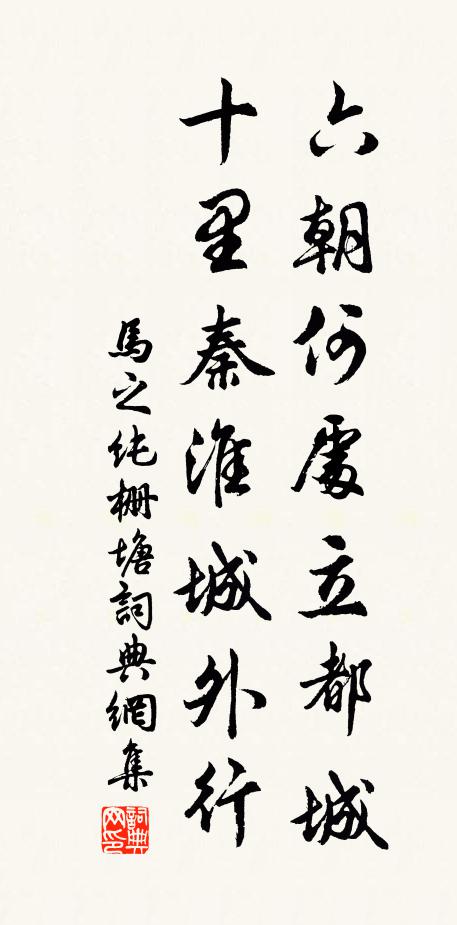 六朝何處立都城
十里秦淮城外行
馬之純柵塘詞典網集
詞典网印